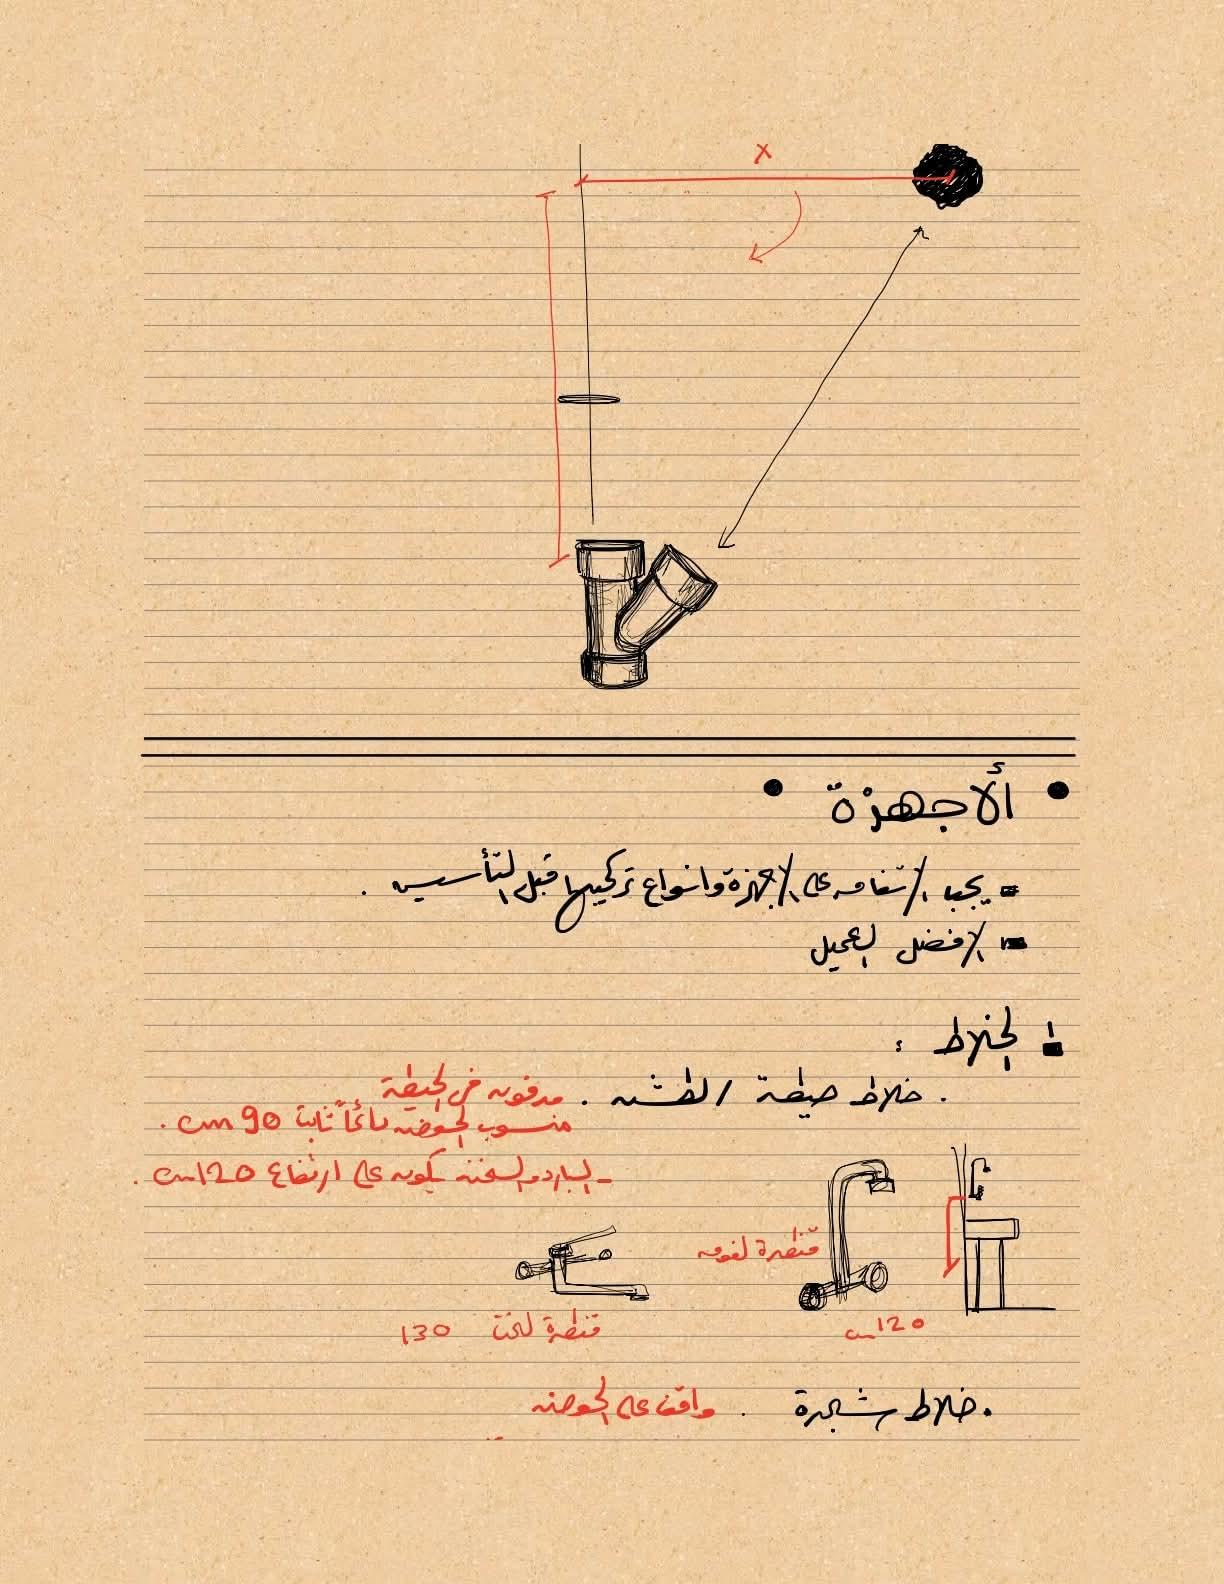 x
• ألأجهزة •
- يجب الإتفاق على الأجهزة وانواع تركيبها قبل التأسيس .
- الافضل العميل
الخلاط :
. خلاط حيطة / لطشه . مدفونه في الحيطة
منسوب الحوض دائماً ثابت 90 cm .
- البارد والسخن يكون على ارتفاع 120 cm .
قنطرة لفوق
120 cm
قنطرة لتحت 130
. خلاط شجرة . واقف على الحوض